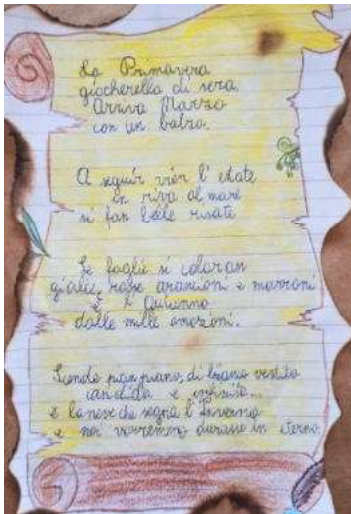 La Primavera
giocherella di sera.
Arriva Marzo
con un balzo.
A seguir vien l'estate
in riva al mare
si fan belle risate
Le foglie si coloran
gialle, rosse arancioni e marroni
è l'Autunno
dalle mille emozioni.
Scende pian piano, di bianco vestita
candida e infinita...
è la neve che segna l'Inverno
e noi vorremmo durasse in eterno.